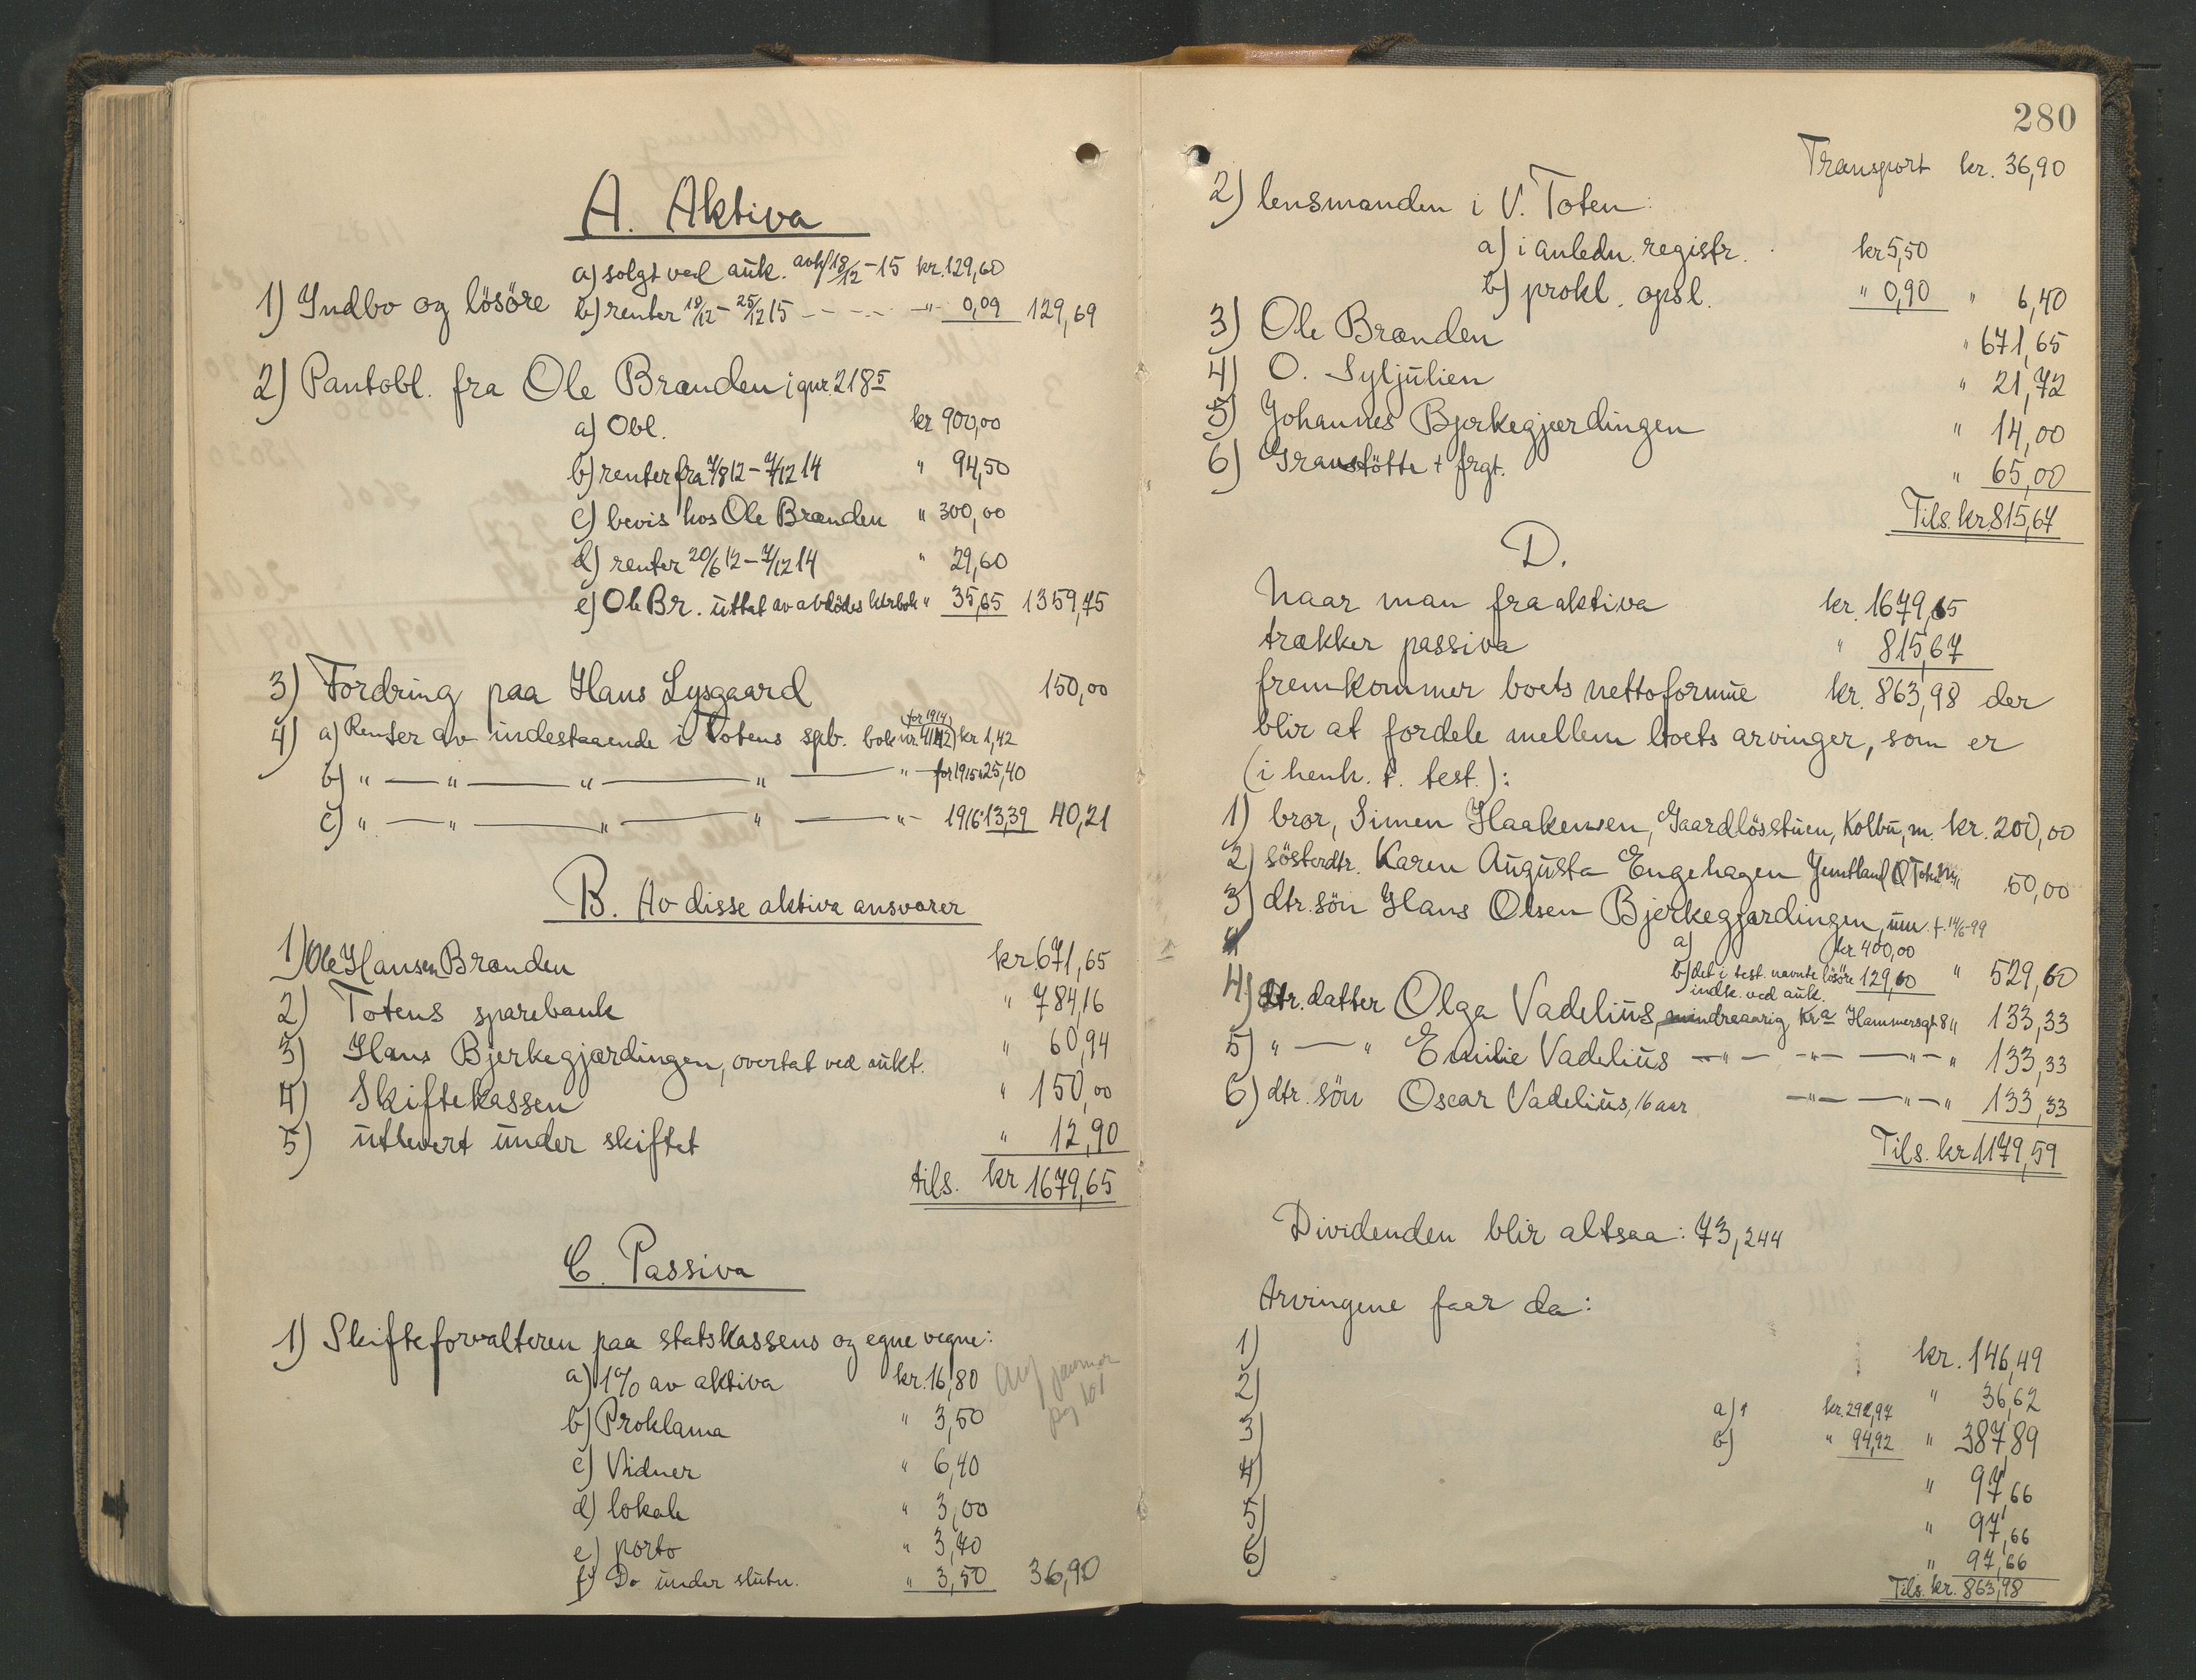 A. Aktiva
1) Indbo og lösöre
a) solgt ved auk. 18/12-15 kr. 129,60
b) renter 18/12 - 25/12 15 " 0,09 129,69
2) Pantobl. fra Ole Brænden i gnr. 218 5
a) Obl. kr 900,00
b) renter fra 7/8 12 - 7/12 14 " 94,50
c) bevis hos Ole Brænden " 300,00
d) renter 20/6 12 - 7/12 14 " 29,60
e) Ole Br. uttat av avdödes bok " 35,65 1359,75
3) Fordring paa Hans Lysgaard 150,00
4) a) Renter av indestaaende i Totens spb. bok nr. (for 1914) kr 1,42
b) " — " — " — " — " for 1915 " 25,40
c) " — " — " — " — " 1916 " 13,39 40,21
B. Av disse aktiva ansvarer
1) Ole Hansen Brænden kr. 671,65
2) Totens sparebank " 784,16
3) Hans Bjerkegjærdingen, overtat ved aukt. " 60,94
4) Skiftekassen " 150,00
5) utlevert under skiftet " 12,90
tils. kr 1679,65
C. Passiva
1) Skifteforvalteren paa statskassens og egne vegne:
a) 1% av aktiva kr. 16,80
b) Proklama " 3,50
c) Vidner " 6,40
d) lokale " 3,00
e) porto " 3,70
f) Do under slutn. " 3,50 36,90
280
Transport kr. 36,90
2) lensmanden i V. Toten:
a) i anledn. registr. kr 5,50
b) prokl. opsl. " 0,90 " 6,40
3) Ole Brænden " 671,65
4) O. Syljulien " 21,72
5) Johannes Bjerkegjærdingen " 14,00
6) Gravstötte + frgt. " 65,00
Tils. kr. 815,67
D.
Naar man fra aktiva kr. 1679,65
trækker passiva " 815,67
fremkommer boets nettoformue kr. 863,98 der
blir at fordele mellem boets arvinger, som er
(i henh. t. test.):
1) bror, Simen Haakensen, Gaardlösstuen, Kolbu, m. kr. 200,00
2) sösterdtr. Karen Augusta Engehagen 50,00
3) dtr. sön Hans Olsen Bjerkegjærdingen, um. f. 14/6-99
a) kr 400,00
b) det i test. nævnte lösöre 129,60 " 529,60
indk. ved auk.
4) dtr. datter Olga Vadelius, mindreaarig Kra Hammersgt 8 " 133,33
5) " — " Emilie Vadelius — " — " — " — " 133,33
6) dtr. sön Oscar Vadelius, 16 aar — " — " — " 133,33
Tils. kr 1179,59
Dividenden blir altsaa: 73,244
Arvingene faar da:
1) kr. 146,49
2) " 36,62
3) a) kr. 292,97
b) " 94,92 " 387,89
4) " 97,66
5) " 97,66
6) " 97,66
Tils. kr. 863,98